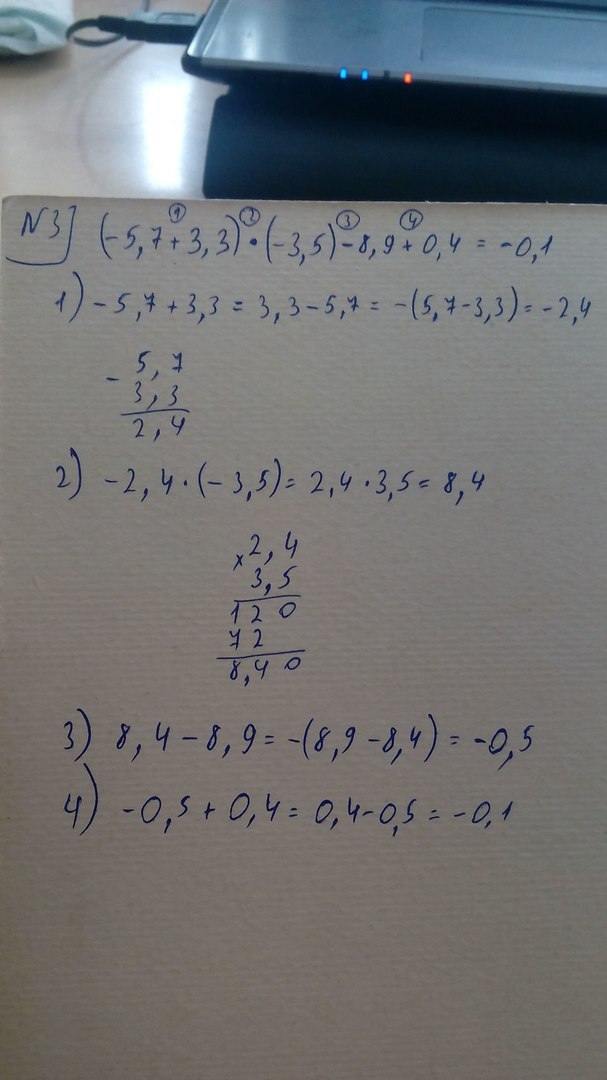 ① ② ③ ④
N3] (-5,7+3,3)•(-3,5)-8,9+0,4 = -0,1
1) -5,7+3,3 = 3,3-5,7 = -(5,7-3,3) = -2,4
- 5,7
3,3
2,4
2) -2,4•(-3,5) = 2,4•3,5 = 8,4
x 2,4
3,5
120
72
8,40
3) 8,4-8,9 = -(8,9-8,4) = -0,5
4) -0,5+0,4 = 0,4-0,5 = -0,1